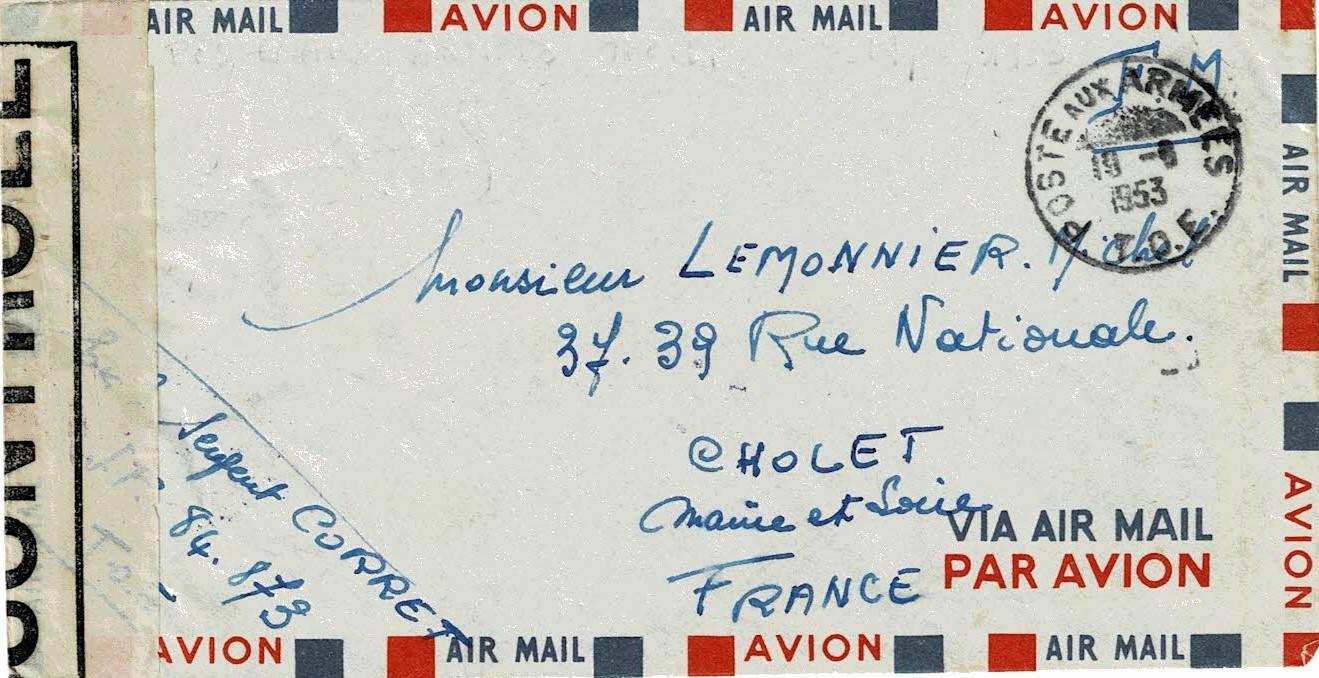 AIR MAIL AVION AIR MAIL AVION
F.M.
POSTE AUX ARMEES
19 -8
1953
T.O.E.
Monsieur LEMONNIER. Michel
37.39 Rue Nationale.
CHOLET
Maine et Loire
FRANCE
VIA AIR MAIL
PAR AVION
Sergent CORRET
84.873
T.O.E
CONTROLE
AIR MAIL
AVION
AVION AIR MAIL AVION AIR MAIL